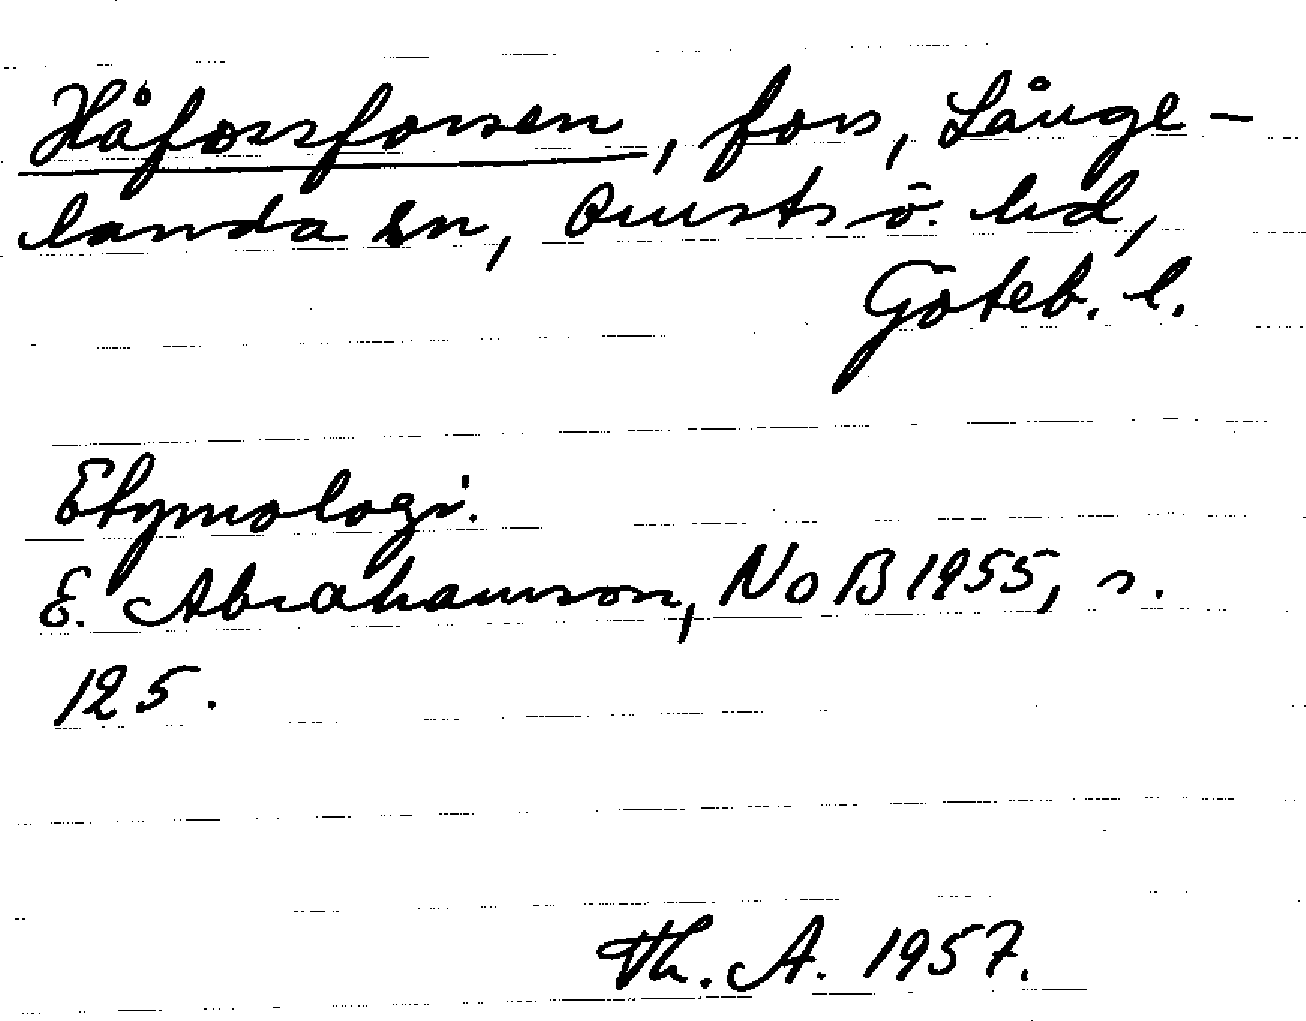 Håforsforsen, fors, Långe-
landa sn, Orusts ö. hd,
Göteb. l.
Etymologi.
E. Abrahamson, NoB 1955, s.
125.
Th. A. 1957.